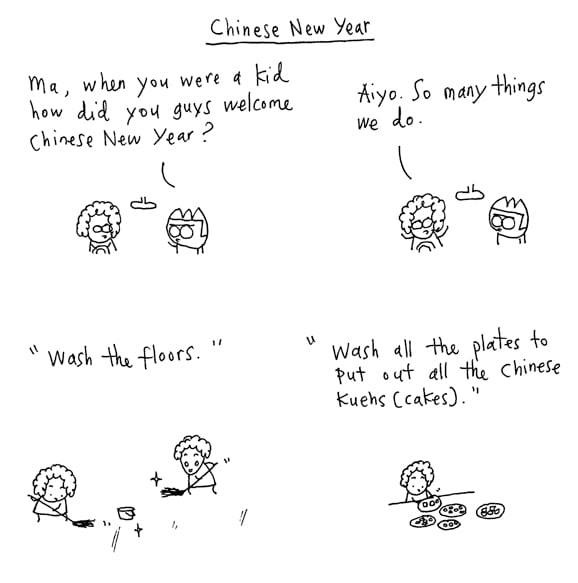 Chinese New Year
Ma, when you were a kid
how did you guys welcome
Chinese New Year?
Aiyo. So many things
we do.
"Wash the floors."
"Wash all the plates to
put out all the Chinese
Kuehs (cakes)."